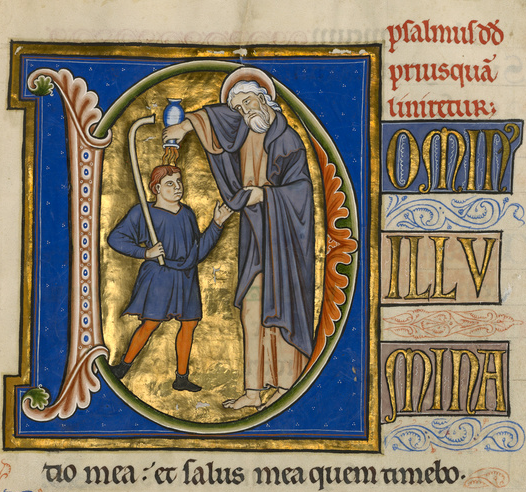 psalmus dd
priusquā
liniretur:
DOMIN
ILLV
MINA
tio mea: et salus mea quem timebo.